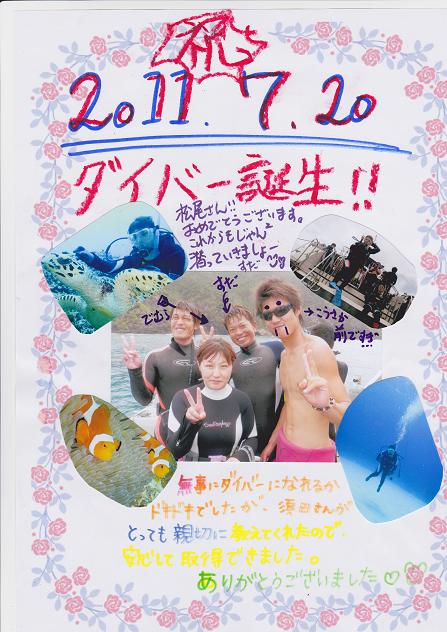 祝
2011.7.20
ダイバー誕生!!
松尾さん!!
おめでとうございます。
これからもじゃんじゃん
潜っていきましょー
すだ
でむら
すだ
→こうさか
前ですぎ
無事にダイバーになれるか
ドキドキでしたが、須田さんが
とっても親切に教えてくれたので、
安心して取得できました。
ありがとうございました♡♡